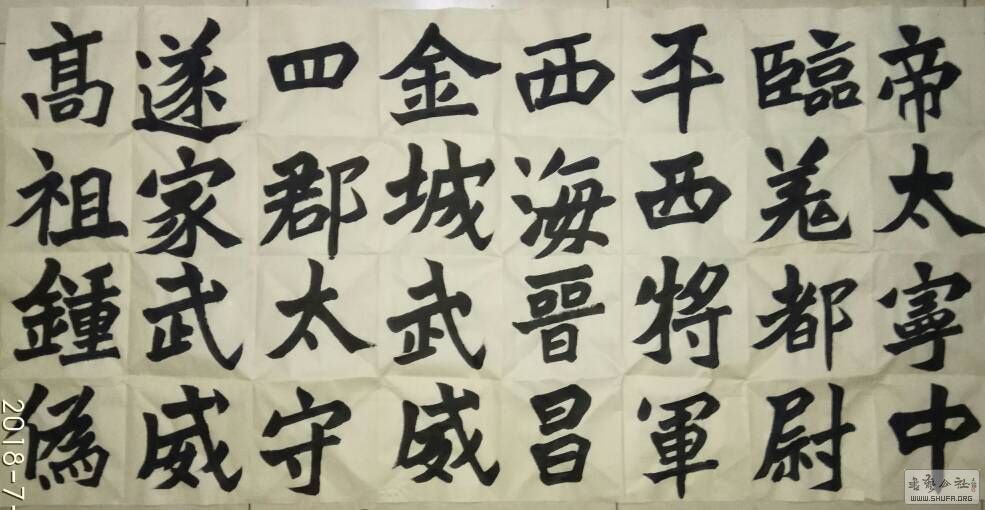 帝太寧中
臨羌都尉
平西將軍
西海晉昌
金城武威
四郡太守
遂家武威
高祖鍾偽
2018-7-
WWW.SHUFA.ORG